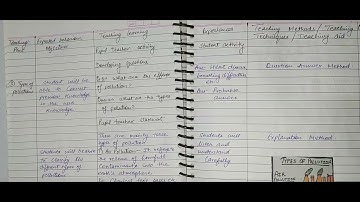 Teaching Point
Expected behaviour objective
Teaching learning
Experiences
Teaching Methods/ Teaching
Techniques/ Teaching aid
Pupil teacher activity
Student activity
Developing Questions
① Type of pollution
Student will be able to connect previous knowledge with the new knowledge
Que: what are the effects of pollution?
Ans: Heart disease, breathing difficulties etc.
Question Answer Method
Que: What are the types of pollution?
Ans: Probable answer
Pupil teacher statement
There are mainly three types of pollution
Students will listen and understand carefully
Explanation Method
Students will be able to classify the different types of pollution
① Air Pollution: It refers to the release of harmful contaminants into the earth's atmosphere.
TYPES OF POLLUTION
AIR POLLUTION